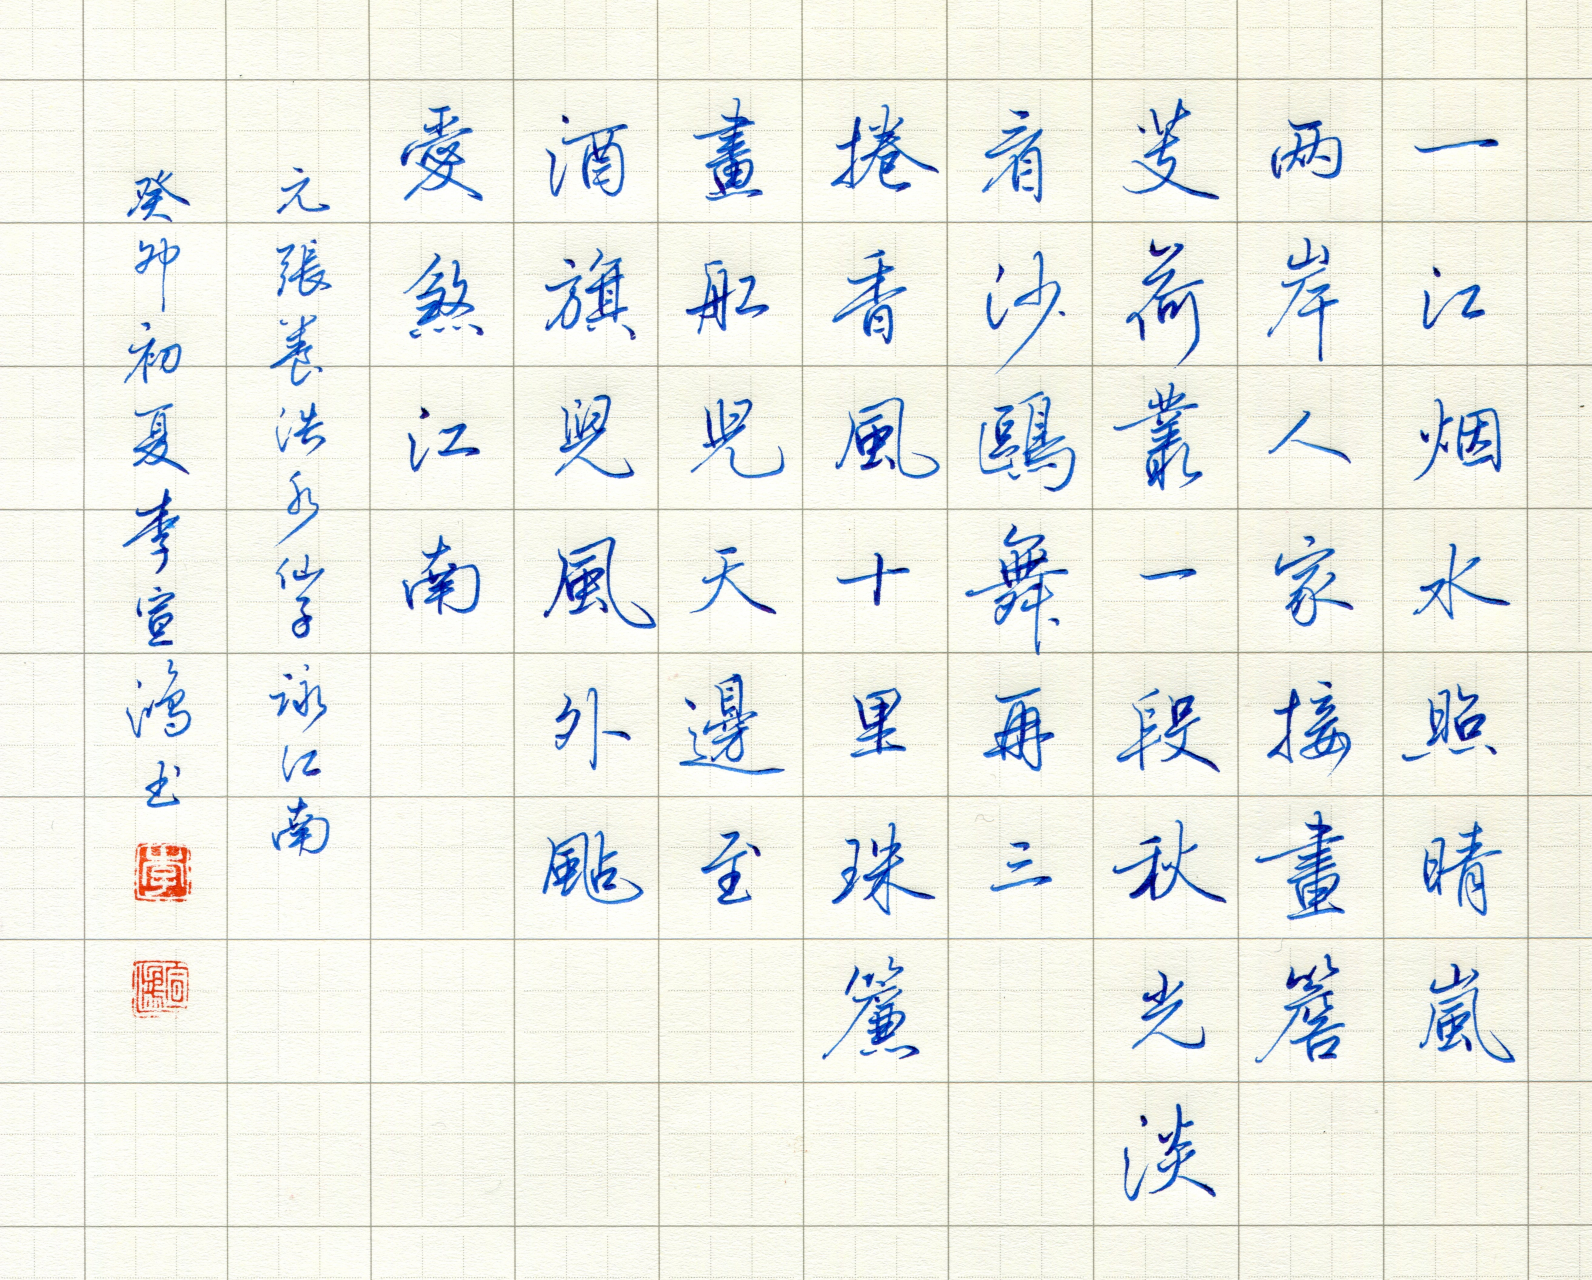 一江烟水照晴嵐
两岸人家接畫簷
芰荷叢一段秋光淡
看沙鷗舞再三
捲香風十里珠簾
畫舡兒天邊至
酒旗兒風外颭
愛煞江南
元張養浩水仙子詠江南
癸卯初夏李宣鴻书
李
宣鴻